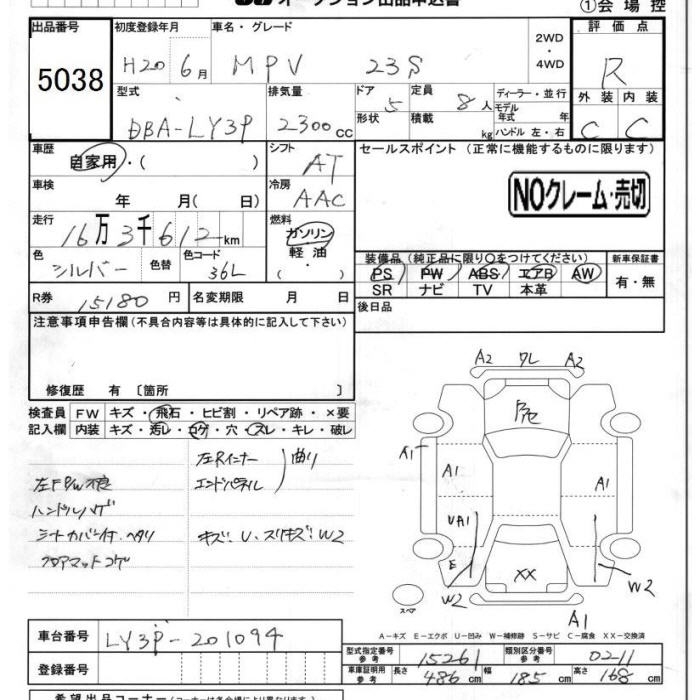 オークション出品申込書
①会場控
出品番号
5038
初度登録年月
H20 6月
車名・グレード
MPV 23S
2WD
・
4WD
評価点
R
外装 内装
C C
型式
DBA-LY3P
排気量
2300cc
ドア
5
形状
定員
8人
積載
kg
ディーラー・並行
モデル
年式 年
ハンドル 左・右
車歴
自家用・( )
シフト
AT
セールスポイント (正常に機能するものに限ります)
NOクレーム・売切
車検
年 月( 日)
冷房
AAC
走行
16万3千612km
燃料
ガソリン
軽油
( ・ )
色
シルバー
色替
色コード
36L
装備品 (純正品に限り○をつけてください)
PS PW ABS エアB AW
SR ナビ TV 本革
新車保証書
有・無
R券 15180円
名変期限 月 日
後日品
注意事項申告欄 (不具合内容等は具体的に記入して下さい)
修復歴 有 〔箇所 〕
検査員
記入欄
FW キズ・飛石・ヒビ割・リペア跡・×要
内装 キズ・汚レ・コゲ・穴・スレ・キレ・破レ
左Rインナー
エンドパネル
曲り
左FP/W不良
ハンドルハゲ
シートカバー付、ヘタリ
フロアマットコゲ
キズ、U、スリキズ、W2
A2 ワレ A2
A1
A1
A1
UA1
E
W2
XX
W2
A1
スペア
A-キズ E-エクボ U-凹み W-補修跡 S-サビ C-腐食 XX-交換済
車台番号
LY3P-201094
登録番号
型式指定番号
参考
15261
類別区分番号
参考
0211
車庫証明用
参考
長さ
486cm
幅
185cm
高さ
168cm
希望出品コーナー